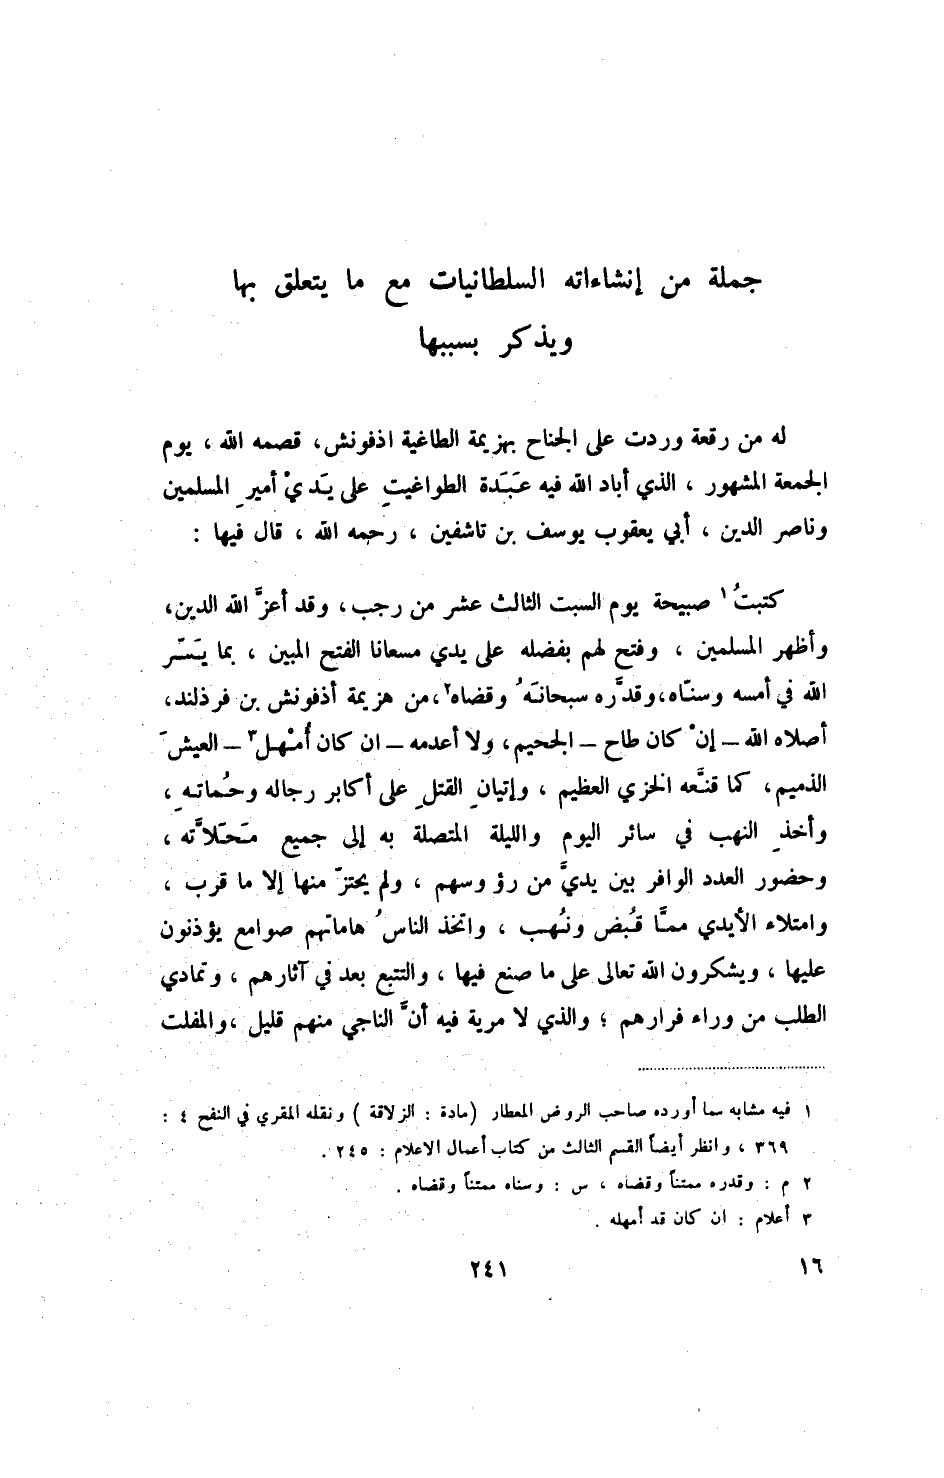 جملة من إنشاءاته السلطانيات مع ما يتعلق بها
ويذكر بسببها
له من رقعة وردت على الجناح بهزيمة الطاغية اذفونش، قصمه الله ، يوم
الجمعة المشهور ، الذي أباد الله فيه عَبَدة الطواغيتِ على يَديْ أميرِ المسلمين
وناصر الدين ، أبي يعقوب يوسف بن تاشفين ، رحمه الله ، قال فيها :
كتبتُ١ صبيحة يوم السبت الثالث عشر من رجب، وقد أعزَّ الله الدين،
وأظهر المسلمين ، وفتح لهم بفضله على يدي مسعانا الفتح المبين ، بما يَسّر
الله في أمسه وسنّاه،وقدَّره سبحانَهُ وقضاه٢،من هزيمة أذفونش بن فرذلند،
أصلاه الله – إنْ كان طاح – الجحيم، ولا أعدمه – ان كان أُمْهل٣ – العيشَ
الذميم، كما قنَّعه الخزي العظيم ، وإتيانِ القتلِ على أكابر رجاله وحُماتهِ ،
وأخذِ النهب في سائر اليوم والليلة المتصلة به إلى جميع مَحَلاَّته ،
وحضور العدد الوافر بين يديَّ من رؤوسهم ، ولم يحتزّ منها إلا ما قرب ،
وامتلاء الأيدي ممَّا قُبض ونُهب ، واتخذ الناسُ هاماتهم صوامع يؤذنون
عليها ، ويشكرون الله تعالى على ما صنع فيها ، والتتبع بعد في آثارهم ، وتمادي
الطلب من وراء فرارهم ؛ والذي لا مرية فيه أنَّ الناجي منهم قليل ،والمفلت
١ فيه مشابه مما أورده صاحب الروض المعطار (مادة : الزلاقة ) ونقله المقري في النفح ٤ :
٣٦٩ ، وانظر أيضاً القسم الثالث من كتاب أعمال الاعلام : ٢٤٥ .
٢ م : وقدره ممتناً وقضاه ، س : وسناه ممتناً وقضاه .
٣ أعلام : ان كان قد أمهله .
١٦ ٢٤١